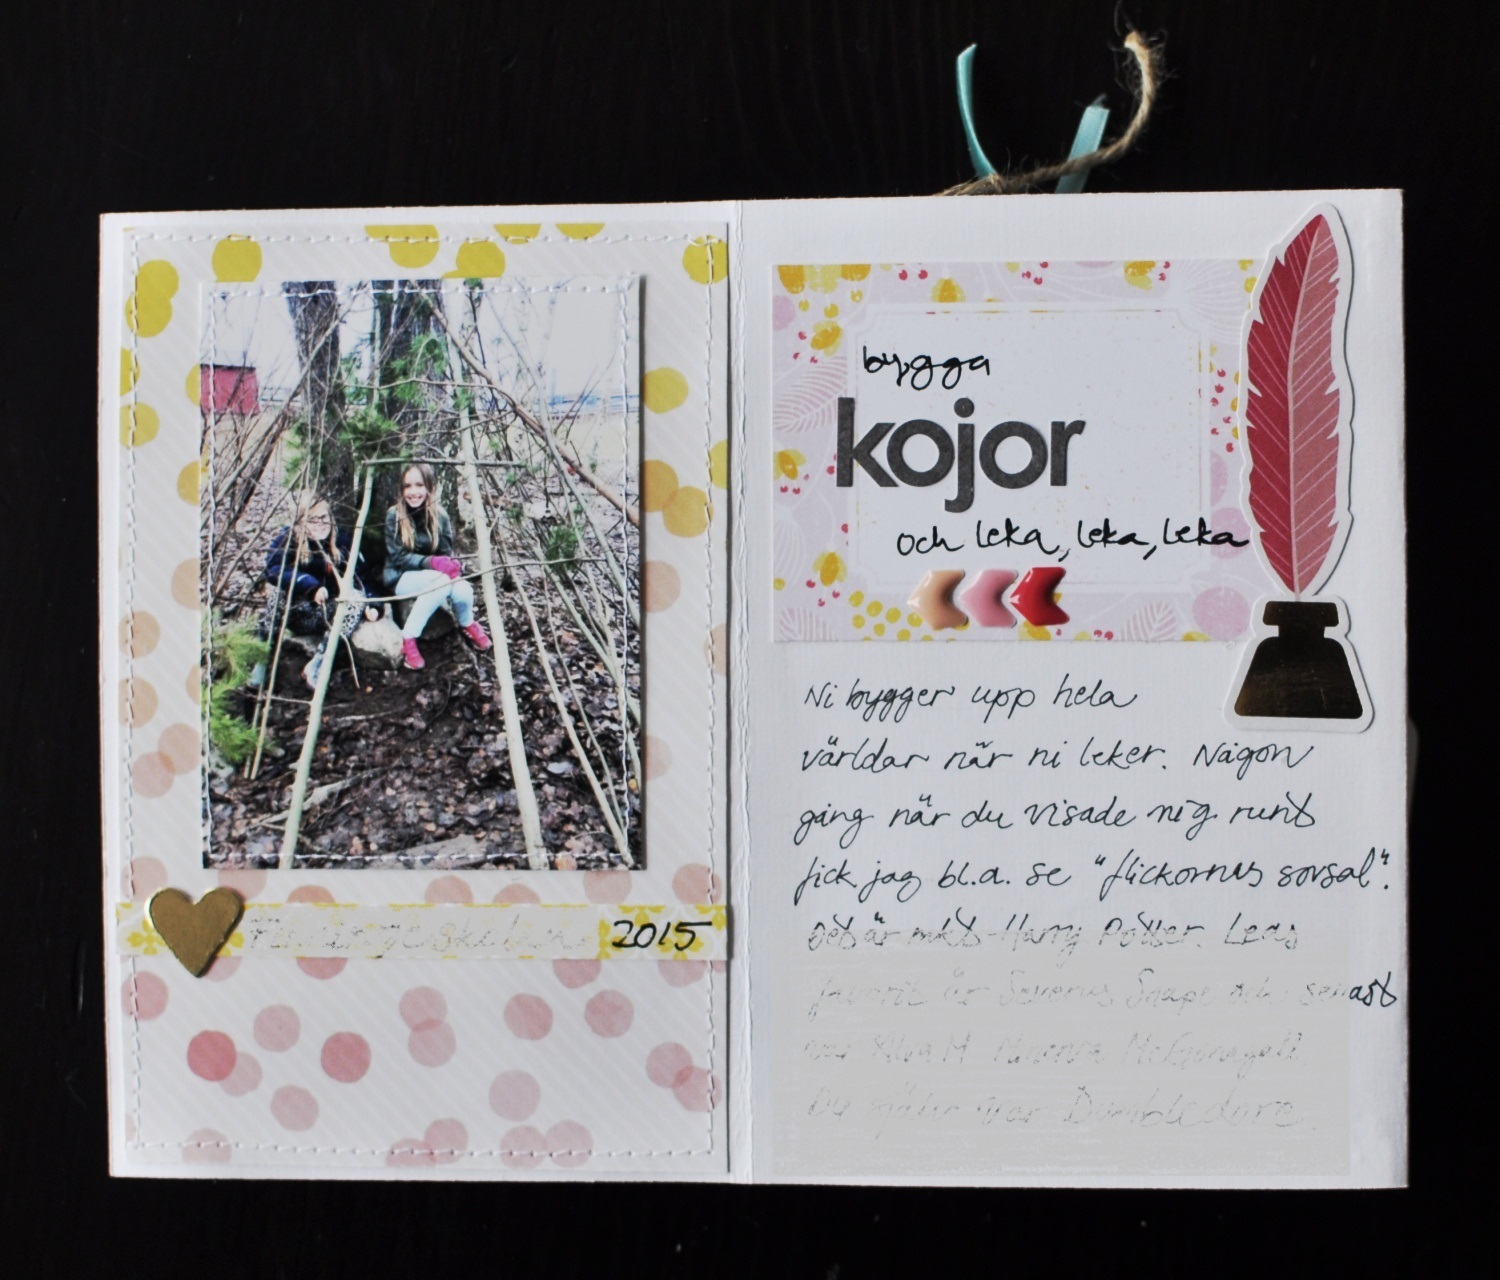 2015
bygga
kojor
och leka, leka, leka
Ni bygger upp hela
världar när ni leker. Någon
gång när du visade mig runt
fick jag bl.a. se "flickornas sovsal".
Det är mkt Harry Potter. Leas
favorit är Severus Snape och senast
var Alva M Minerva McGonagall.
Du själv var Dumbledore.